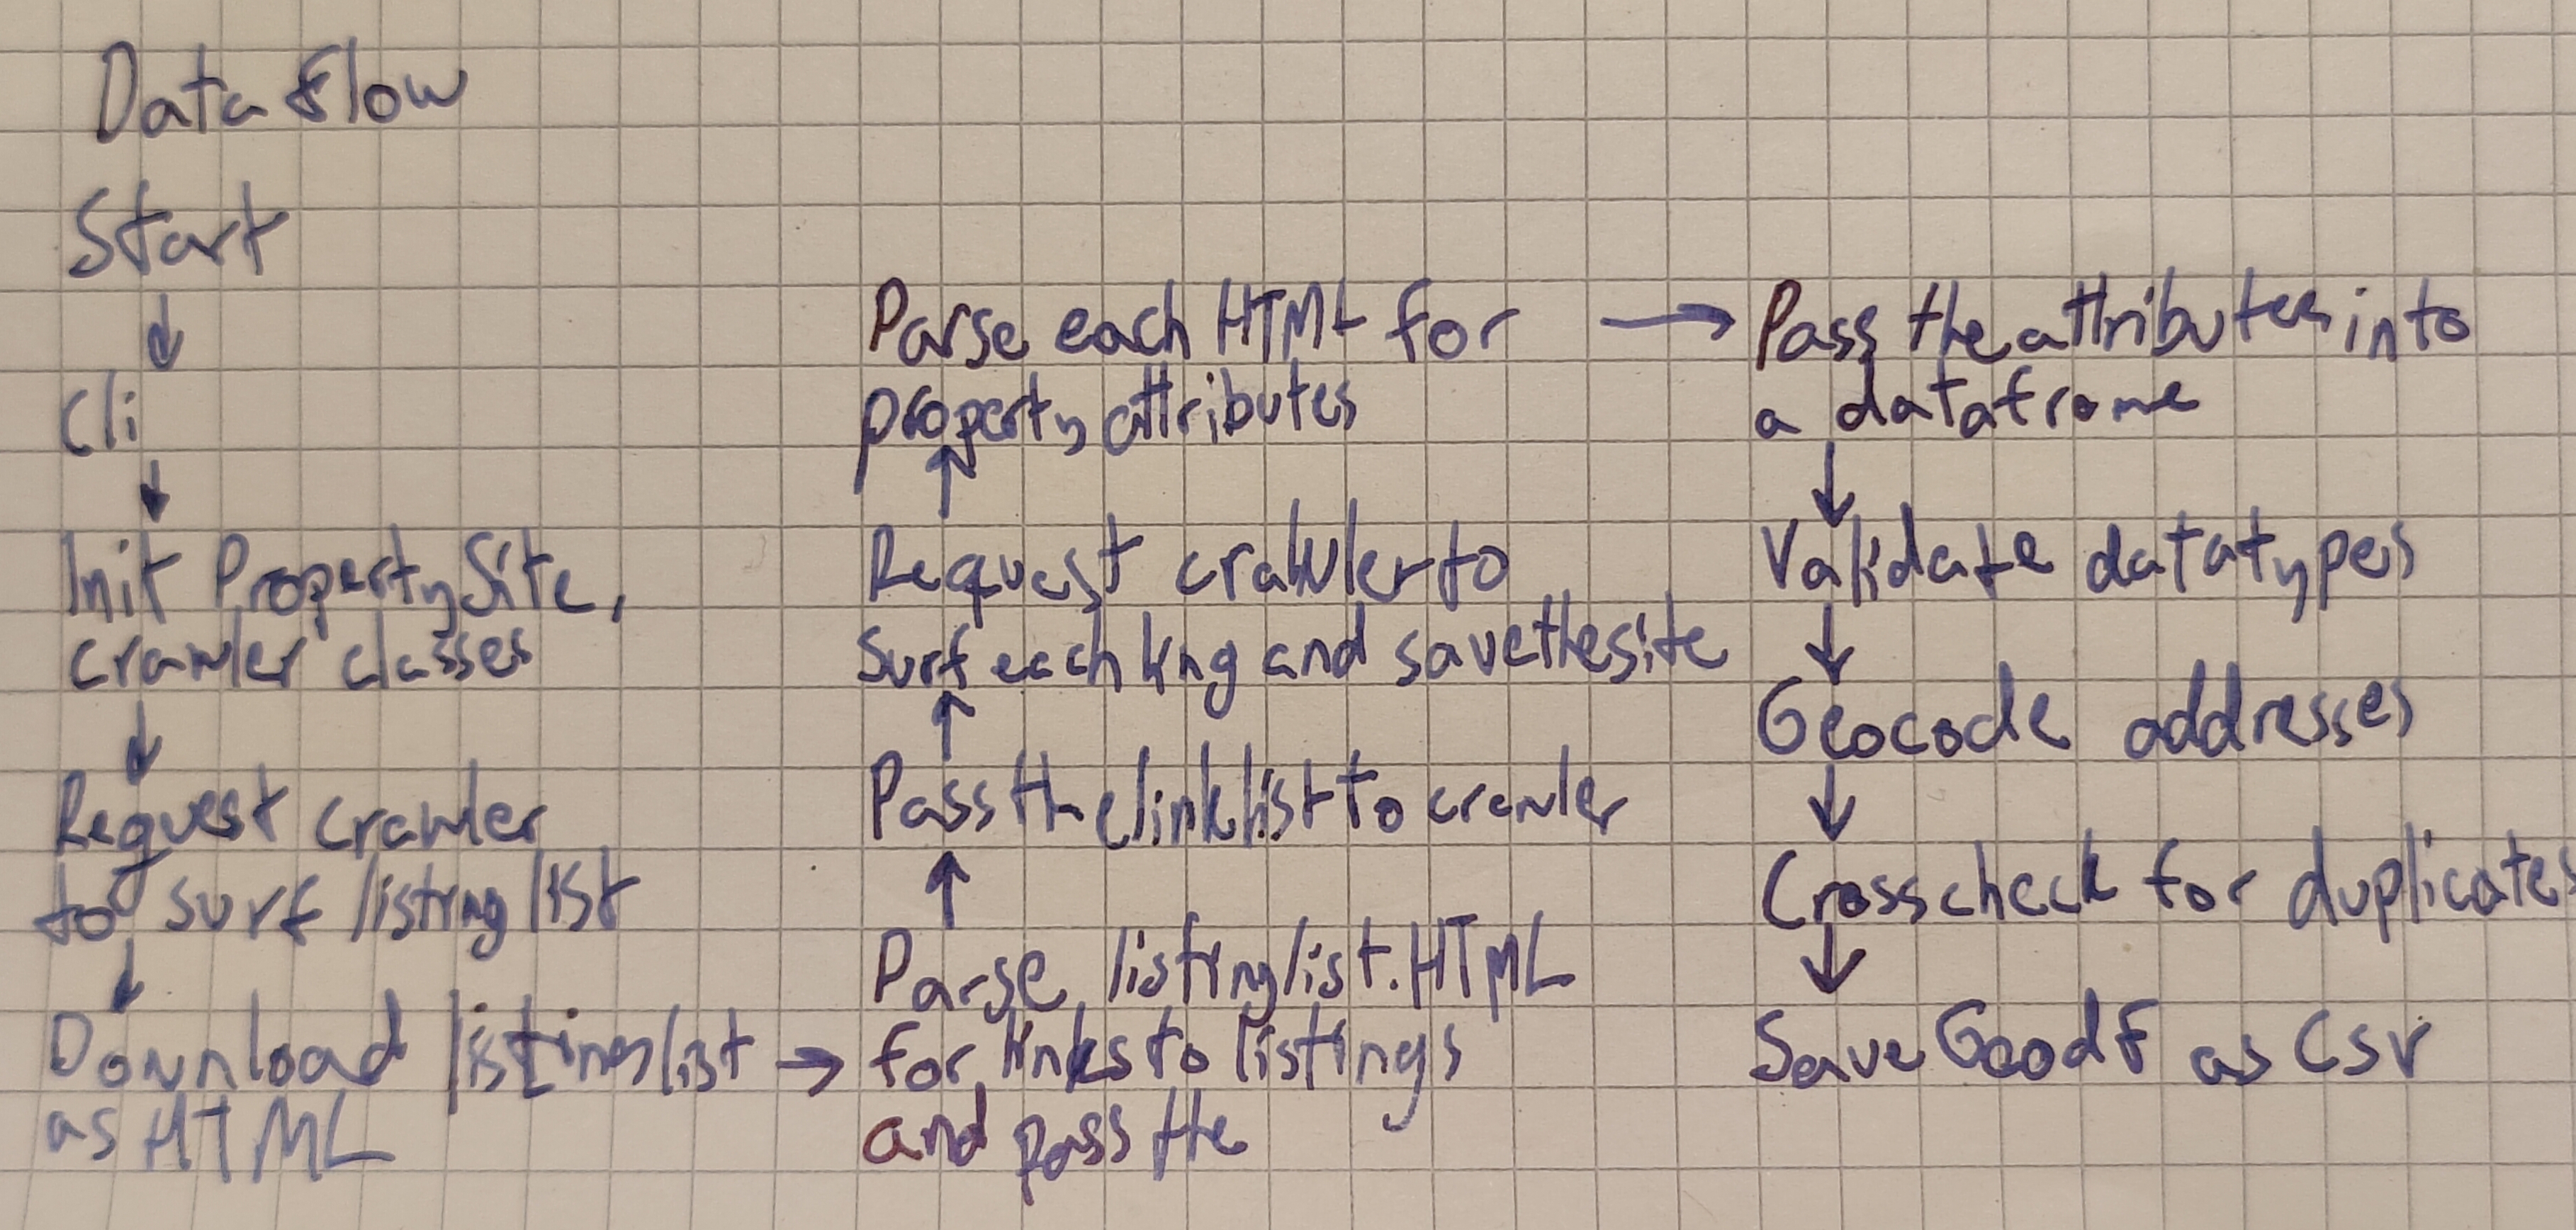 Data Flow
Start
↓
Cli
↓
Init PropertySite,
crawler classes
↓
Request crawler
to surf listinglist
↓
Download listingslist →
as HTML
Parse listinglist.HTML
for links to listings
and pass the
↑
Pass the linklist to crawler
↑
Request crawler to
surf each link and save the site
↑
Parse each HTML for →
property attributes
Pass the attributes into
a dataframe
↓
Validate datatypes
↓
Geocode addresses
↓
Crosscheck for duplicates
↓
Save GeodF as CSV